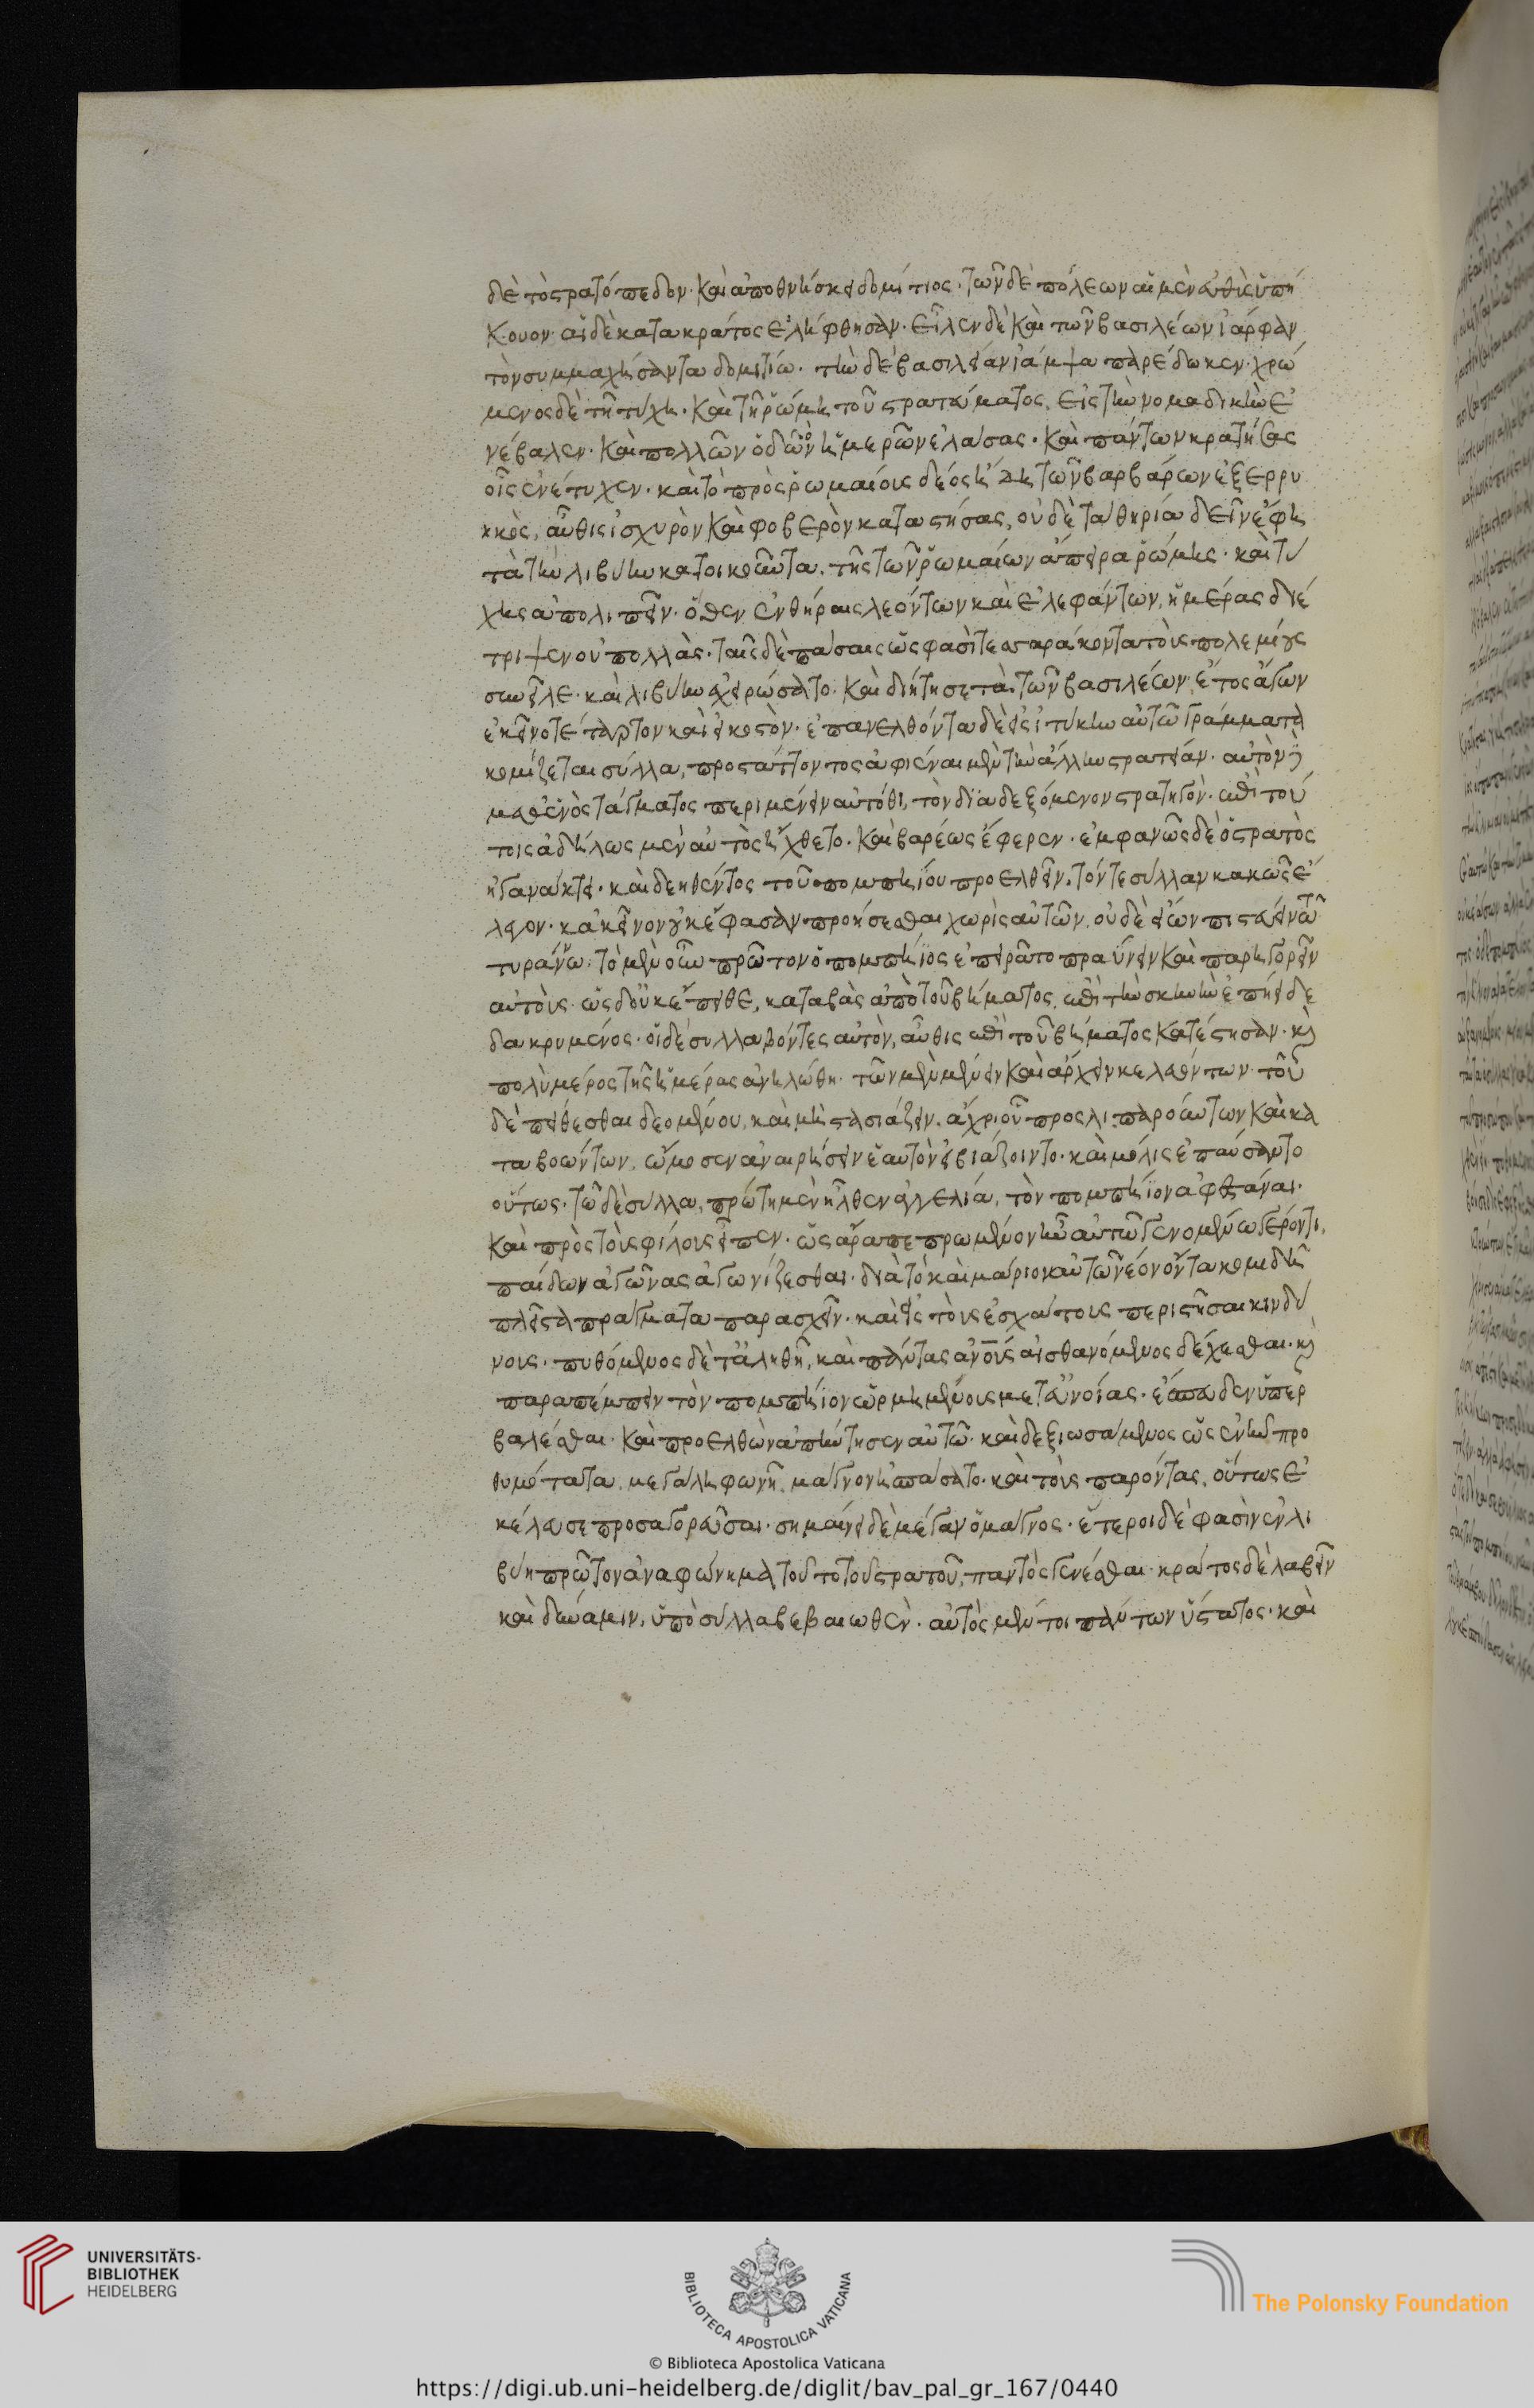 δὲ τὸ στρατόπεδον· καὶ ἀποθνήσκει δομίτιος· τῶν δὲ πόλεων αἱ μὲν εὐθὺς ὑπή
κουον· αἱ δὲ κατακράτος ἐλήφθησαν· εἷλεν δὲ καὶ τῶν βασιλέων ἰάρφαν
τὸν συμμαχήσαντα δομιτίω· τὴν δὲ βασιλείαν ἰάμψα παρέδωκεν· χρώ
μενος δὲ τῆ τύχη· καὶ τῆ ῥώμη τοῦ στρατεύματος, εἰς τὴν νομαδικὴν ἐ
νέβαλεν· καὶ πολλῶν ὁδὸν ἡμερῶν ἐλάσας· καὶ πάντων κρατήσας
οἷς ἐνέτυχεν· καὶ τὸ πρὸς ῥωμαίους δέος ἤδη τῶν βαρβάρων ἐξερρυ
ηκὸς, αὖθις ἰσχυρὸν καὶ φοβερὸν καταστήσας, οὐδὲ τὰ θηρία δεῖν ἔφη
τὰ τὴν λιβύην κατοικοῦντα, τῆς τῶν ῥωμαίων ἄπειρα ῥώμης· καὶ τύ
χης ἀπολιπεῖν· ὅθεν ἐν θήραις λεόντων καὶ ἐλεφάντων, ἡμέρας διέ
τριψεν οὐ πολλάς· ταῖς δὲ πάσαις ὥς φασὶ τεσσαράκοντα τοὺς πολεμίους
συνεῖλε· καὶ λιβύην ἐχειρώσατο· καὶ διήτησε τὰ τῶν βασιλέων, ἔτος ἄγων
ἐκεῖνο τέταρτον καὶ εἰκοστὸν· ἐπανελθόντα δὲ εἰς ἰτύκην αὐτῶ γράμματα
κομίζεται σύλλα, προστάττοντος ἀφιέναι μὲν τὴν ἄλλην στρατειάν· αὐτὸν δὲ
μαθ' ἑνὸς τάγματος περιμένειν αὐτόθι, τὸν διαδεξόμενον στρατηγόν· ἐπὶ τού
τοις ἀδήλως μὲν αὐτὸς ἤχθετο· καὶ βαρέως ἔφερεν· ἐμφανῶς δὲ ὁ στρατὸς
ἠγανάκτει· καὶ δεηθέντος τοῦ πομπηίου προελθεῖν, τόν τε σύλλαν κακῶς ἔ
λεγον· κἀκεῖνον οὐκ ἔφασαν προήσεσθαι χωρὶς αὐτῶν, οὐδὲ εἴων πιστεύειν τῶ
τυράννω· τὸ μὲν οὖν πρῶτον ὁ πομπήιος ἐπειρᾶτο πραΰνειν καὶ παρηγορεῖν
αὐτούς· ὡς δ' οὐκ ἔπειθε, καταβὰς ἀπὸ τοῦ βήματος, ἐπὶ τὴν σκηνὴν ἐπήει δε
δακρυμένος· οἱ δὲ συλλαβόντες αὐτὸν, αὖθις ἐπὶ τοῦ βήματος κατέστησαν· καὶ
πολὺ μέρος τῆς ἡμέρας ἀνηλώθη· τῶν μὲν μένειν καὶ ἄρχειν κελευόντων· τοῦ
δὲ πείθεσθαι δεομένου, καὶ μὴ στασιάζειν, ἄχρι οὗ προσλιπαρούντων καὶ κα
ταβοώντων, ὤμοσεν ἀναιρήσειν ἑαυτὸν εἰ βιάζοιντο· καὶ μόλις ἐπαύσαντο
οὕτως· τῶ δὲ σύλλα, πρώτη μὲν ἦλθεν ἀγγελία, τὸν πομπήιον ἀφεστάναι·
καὶ πρὸς τοὺς φίλους εἶπεν· ὡς ἄρα πεπρωμένον ἦν αὐτῶ γενομένω γέροντι,
παίδων ἀγῶνας ἀγωνίζεσθαι· διὰ τὸ καὶ μάριον αὐτῶ νέον ὄντα κομιδῆ
πλεῖστα πράγματα παρασχεῖν· καὶ εἰς τοὺς ἐσχάτους περιστῆσαι κινδύ
νους· πυθόμενος δὲ τἀληθῆ, καὶ πάντας ἀνους αἰσθανόμενος δέχεσθαι· καὶ
παραπέμπειν τὸν πομπήιον ὡρμημένους μετ' εὐνοίας· ἔσπευδεν ὑπερ
βαλέσθαι· καὶ προελθὼν ἀπήντησεν αὐτῶ· καὶ δεξιωσάμενος ὡς ἐνῆν προ
θυμότατα, μεγάλη φωνῆ, μάγνον ἠσπάσατο· καὶ τοὺς παρόντας, οὕτως ἐ
κέλευσε προσαγορεῦσαι· σημαίνει δὲ μέγαν ὁ μάγνος· ἕτεροι δέ φασὶν ἐν λι
βύη πρῶτον ἀναφώνημα τοῦτο τοῦ στρατοῦ, παντὸς γενέσθαι· κράτος δὲ λαβεῖν
καὶ δύναμιν, ὑπὸ σύλλα βεβαιωθὲν· αὐτὸς μέντοι πάντων ὕστατος· καὶ
UNIVERSITÄTS-
BIBLIOTHEK
HEIDELBERG
BIBLIOTECA APOSTOLICA VATICANA
The Polonsky Foundation
© Biblioteca Apostolica Vaticana
https://digi.ub.uni-heidelberg.de/diglit/bav_pal_gr_167/0440